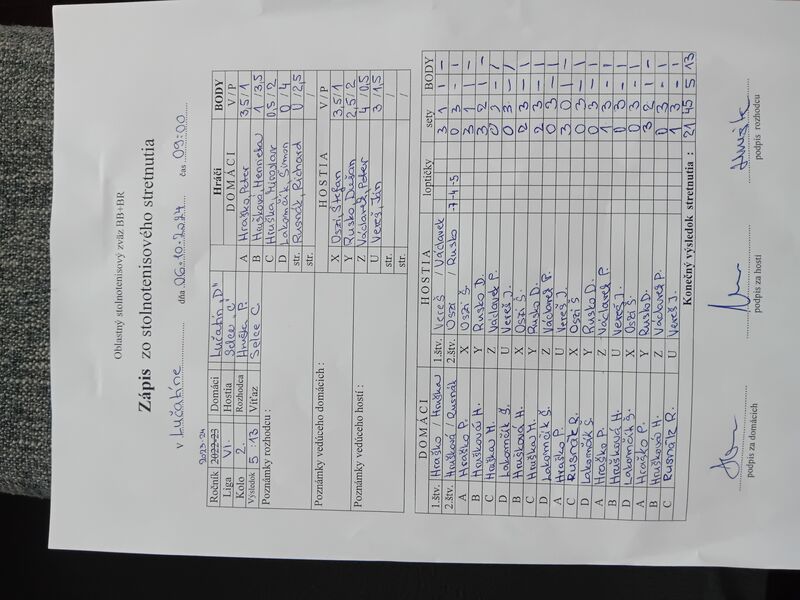 Oblastný stolnotenisový zväz BB+BR
Zápis zo stolnotenisového stretnutia
v Lučatíne dňa 06.10.2024 čas 09:00
2023-24
Ročník 2022-23 Domáci Lučatín "D"
Liga VI. Hostia Selce "C"
Kolo 2. Rozhodca Hruška P.
Výsledok 5 13 Víťaz Selce C
Poznámky rozhodcu :
Poznámky vedúceho domácich :
Poznámky vedúceho hostí :
Hráči BODY
DOMÁCI V/P
A Hraško, Peter 3,5/1
B Hrušková, Henrieta 1/3,5
C Hruška, Miroslav 0,5/2
D Lakomčík, Simon 0/4
str. Rusnák, Richard 0/2,5
str. /
HOSTIA V/P
X Oszi, Štefan 3,5/1
Y Rusko, Dušan 2,5/2
Z Václavek, Peter 4/0,5
U Vereš, Ján 3/1,5
str. /
str. /
DOMÁCI HOSTIA loptičky sety BODY
1.štv. Hraško / Hruška 1.štv. Vereš / Václavek 3 1 1 -
2.štv. Hrušková / Rusnák 2.štv. Oszi / Rusko -7-4-5 0 3 - 1
A Hraško P. X Oszi Š. 3 1 1 -
B Hrušková H. Y Rusko D. 3 2 1 -
C Hruška M. Z Václavek P.
D Lakomčík Š. U Vereš J. 0 3 - 1
B Hrušková H. X Oszi Š. 2 3 - 1
C Hruška M. Y Rusko D.
D Lakomčík Š. Z Václavek P. 0 3 - 1
A Hraško P. U Vereš J. 3 0 1 -
C Rusnák R. X Oszi Š
D Lakomčík S. Y Rusko D. 0 3 - 1
A Hraško P. Z Václavek P. 1 3 - 1
B Hrušková H. U Vereš J. 0 3 - 1
D Lakomčík S. X Oszi Š. 0 3 - 1
A Hraško P. Y Rusko D. 3 2 1 -
B Hrušková H Z Václavek P. 0 3 - 1
C Rusnák R. U Vereš J. 1 3 - 1
Konečný výsledok stretnutia : 21 45 5 13
podpis za domácich podpis za hostí podpis rozhodcu